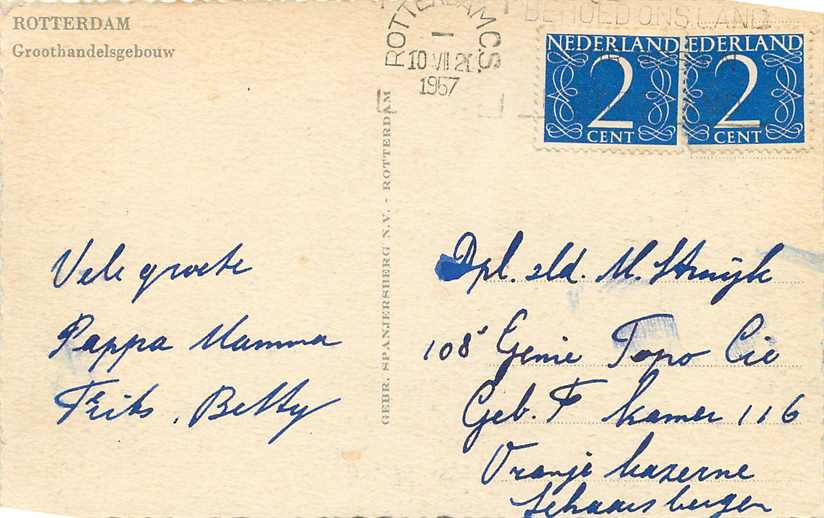 ROTTERDAM
Groothandelsgebouw
ROTTERDAM CS
1
10 VII 20
1957
BEHOED ONS LAND
NEDERLAND
2
CENT
NEDERLAND
2
CENT
GEBR. SPANJERSBERG N.V. - ROTTERDAM
Vele groete
Pappa Mamma
Frits, Betty
Dpl. sld. M. Struijk
108e Genie Topo Cie
Geb. F kamer 116
Oranje kazerne
Schaarsbergen